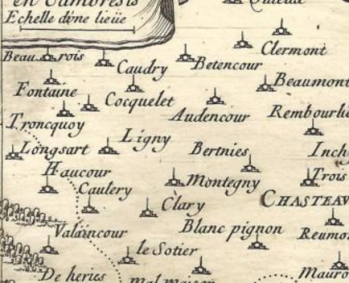 en Cambresis
Echelle d'une lieüe
Clermont
Beau rois
Caudry
Betencour
Beaumont
Fontaine
Cocquelet
Audencour
Rembourli
Troncquoy
Longsart
Ligny
Bertnies
Inch
Haucour
Caulery
Montegny
Trois
Clary
CHASTEAV
Valaincour
Blanc pignon
Reumon
le Sotier
De heries
Mauro